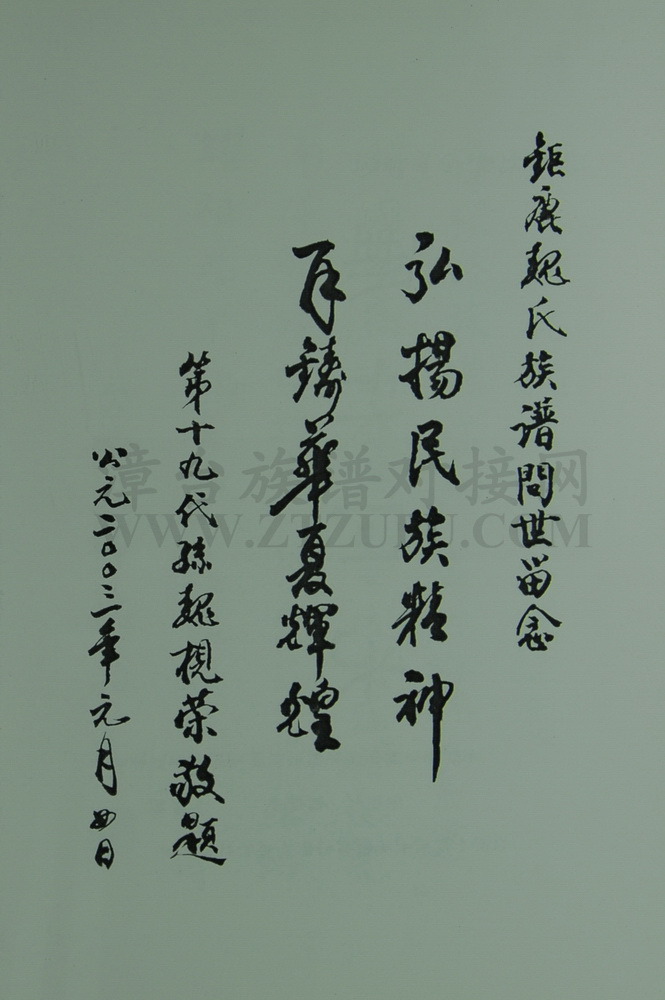 鉅鹿魏氏族谱問世留念
弘揚民族精神
再鑄華夏輝煌
第十九代孫魏棍荣敬題
公元二00三年元月廿日
漳台族谱对接网
WWW.ZTZUPU.COM